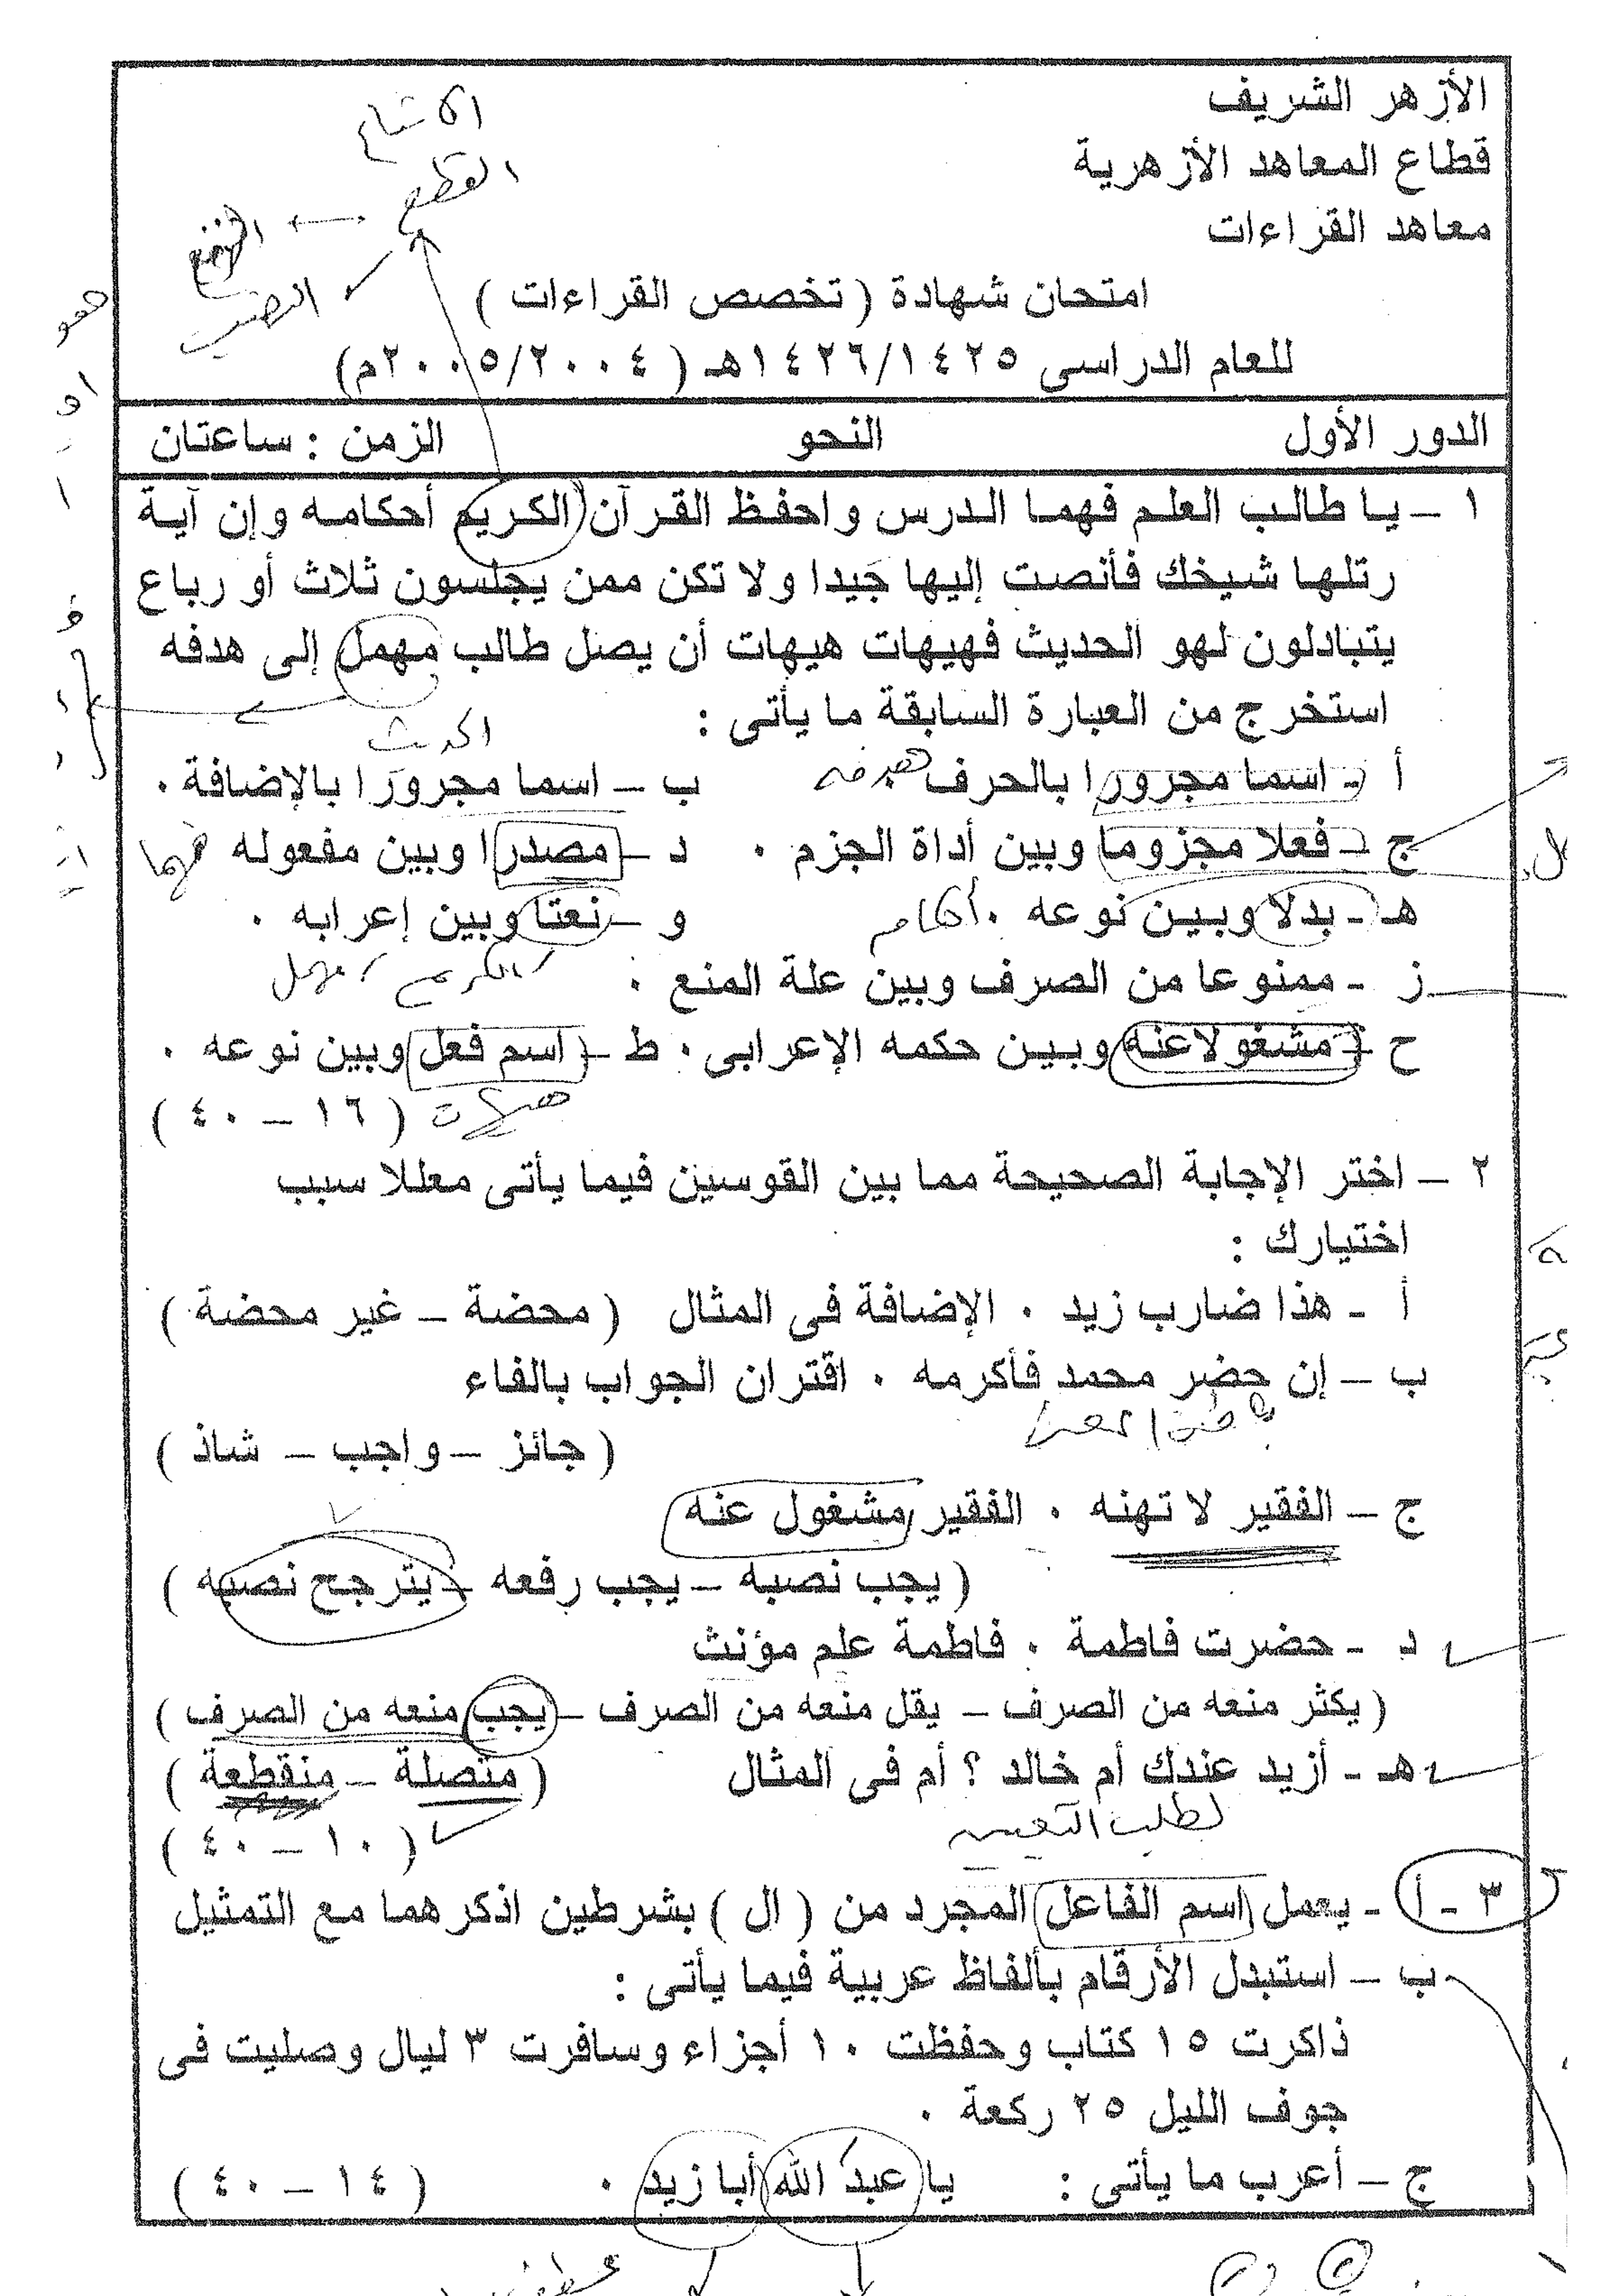 الأزهر الشريف
قطاع المعاهد الأزهرية
معاهد القراءات
الإتباع
القطع
الرفع
النصب
امتحان شهادة ( تخصص القراءات )
للعام الدراسى ١٤٢٦/١٤٢٥هـ ( ٢٠٠٥/٢٠٠٤م)
الدور الأول النحو الزمن : ساعتان
١ – يا طالب العلم فهما الدرس واحفظ القرآن الكريم أحكامه وإن آية
رتلها شيخك فأنصت إليها جَيدا ولا تكن ممن يجلسون ثلاث أو رباع
يتبادلون لهو الحديث فهيهات هيهات أن يصل طالب مهمل إلى هدفه
استخرج من العبارة السابقة ما يأتى :
الحديث
أ - اسما مجرورا بالحرف هدفه ب – اسما مجرورا بالإضافة .
ج – فعلا مجزوما وبين أداة الجزم . د – مصدرا وبين مفعوله فهما
هـ - بدلا وبين نوعه . أحكام و – نعتا وبين إعرابه .
الكريم / مهمل
ز - ممنوعا من الصرف وبين علة المنع .
ح – مشغولا عنه وبين حكمه الإعرابى . ط – اسم فعل وبين نوعه .
هيهات ( ١٦ – ٤٠ )
٢ – اختر الإجابة الصحيحة مما بين القوسين فيما يأتى معللا سبب
اختيارك :
أ - هذا ضارب زيد . الإضافة فى المثال ( محضة – غير محضة )
ب – إن حضر محمد فأكرمه . اقتران الجواب بالفاء
( جائز – واجب – شاذ )
ج – الفقير لا تهنه . الفقير مشغول عنه
( يجب نصبه – يجب رفعه – يترجح نصبه )
د - حضرت فاطمة . فاطمة علم مؤنث
( يكثر منعه من الصرف – يقل منعه من الصرف – يجب منعه من الصرف )
هـ - أزيد عندك أم خالد ؟ أم فى المثال ( متصلة – منقطعة )
لطلب التعيين
( ١٠ – ٤٠ )
٣ - أ - يعمل اسم الفاعل المجرد من ( ال ) بشرطين اذكرهما مع التمثيل
ب – استبدل الأرقام بألفاظ عربية فيما يأتى :
ذاكرت ١٥ كتاب وحفظت ١٠ أجزاء وسافرت ٣ ليال وصليت فى
جوف الليل ٢٥ ركعة .
ج – أعرب ما يأتى : يا عبدَ الله أبا زيد . ( ١٤ – ٤٠ )